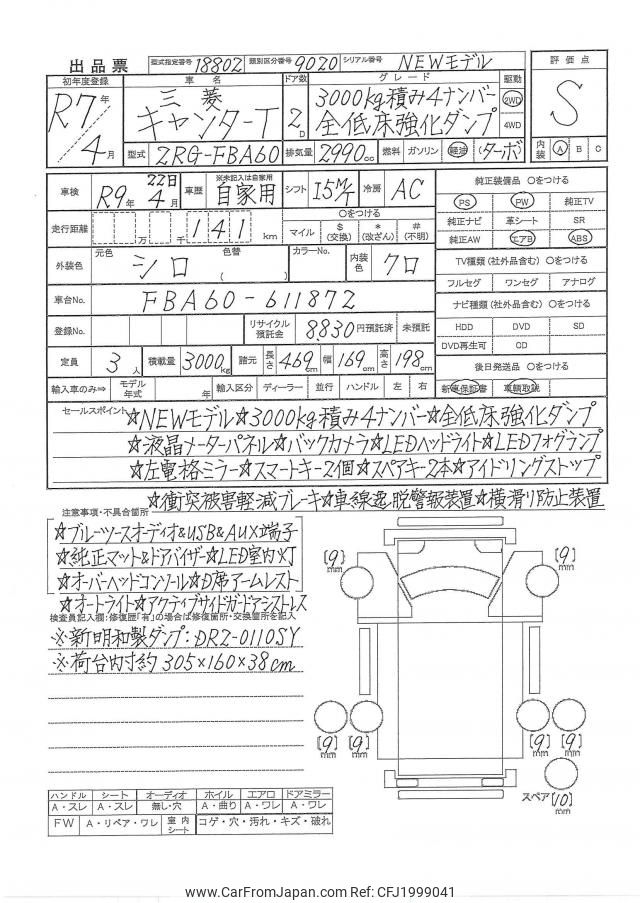 出品票 型式指定番号 18802 類別区分番号 9020 シリアル番号 NEWモデル
初年度登録 車名 ドア数 グレード 駆動 評価点
R7年 4月 三菱 キャンターT 2D 3000kg積み4ナンバー 全低床強化ダンプ 2WD 4WD S
型式 2RG-FBA60 排気量 2990cc 燃料 ガソリン 軽油 (ターボ) 内装 A B C
車検 R9年 22日 4月 車歴 ※未記入は自家用 自家用 シフト I5M/T 冷房 AC 純正装備品 ○をつける
PS PW 純正TV
走行距離 万 千 141 km ○をつける マイル $(交換) *(改ざん) #(不明) 純正ナビ 革シート SR
純正AW エアB ABS
外装色 元色 シロ 色替 ( ) カラーNo. 内装色 クロ TV種類(社外品含む) ○をつける
フルセグ ワンセグ アナログ
車台No. FBA60-611872 ナビ種類(社外品含む) ○をつける
登録No. リサイクル預託金 8830円預託済 未預託 HDD DVD SD
DVD再生可 CD
定員 3人 積載量 3000kg 諸元 長さ 469cm 幅 169cm 高さ 198cm 後日発送品 ○をつける
輸入車のみ⇒ モデル年式 年 輸入区分 ディーラー 並行 ハンドル 左 右 新車保証書 車輌取説
セールスポイント ☆NEWモデル☆3000kg積み4ナンバー☆全低床強化ダンプ
☆液晶メーターパネル☆バックカメラ☆LEDヘッドライト☆LEDフォグランプ
☆左電格ミラー☆スマートキー2個☆スペアキー2本☆アイドリングストップ
☆衝突被害軽減ブレーキ☆車線逸脱警報装置☆横滑り防止装置
注意事項・不具合箇所
☆ブルーツースオーディオ&USB&AUX端子
☆純正マット&ドアバイザー☆LED室内灯
☆オーバーヘッドコンソール☆D席アームレスト
☆オートライト☆アクティブサイドガードアシストレス
検査員記入欄:修復歴「有」の場合は修復箇所・交換箇所を記入
※新明和製ダンプ:DR2-0110SY
※荷台内寸約305×160×38cm
[9]mm [9]mm
[9]mm [9]mm [9]mm [9]mm
スペア[10]mm
ハンドル シート オーディオ ホイル エアロ ドアミラー
A・スレ A・スレ 無し・穴 A・曲り A・ワレ A・ワレ
FW A・リペア・ワレ 室内シート コゲ・穴・汚れ・キズ・破れ
www.CarFromJapan.com Ref: CFJ1999041